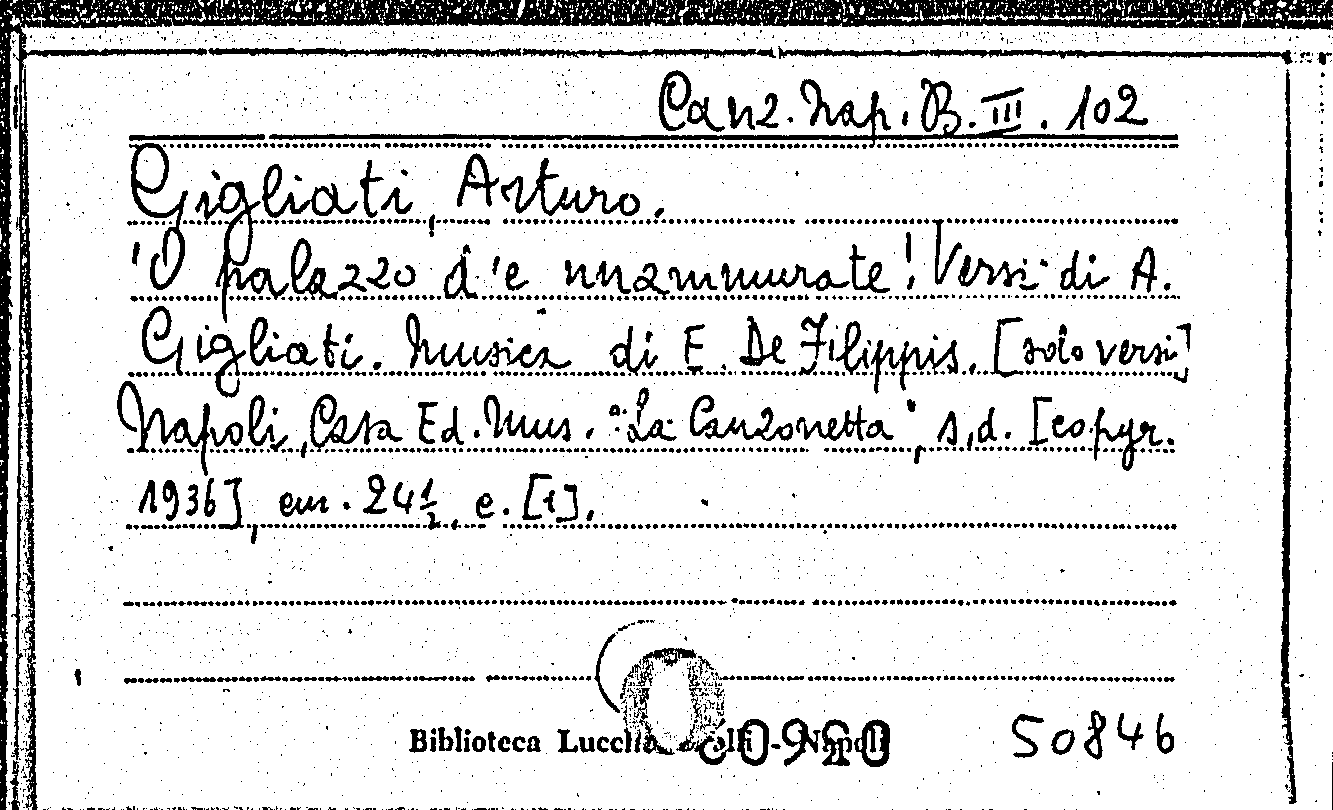 Canz. Nap. B. III. 102
Gigliati, Arturo.
'O palazzo d''e nnammurate! Versi di A.
Gigliati. Musica di E. De Filippis. [solo versi]
Napoli, Casa Ed. Mus. "La Canzonetta", s.d. [copyr.
1936], cm. 24½, c. [1].
Biblioteca - Napoli
50846